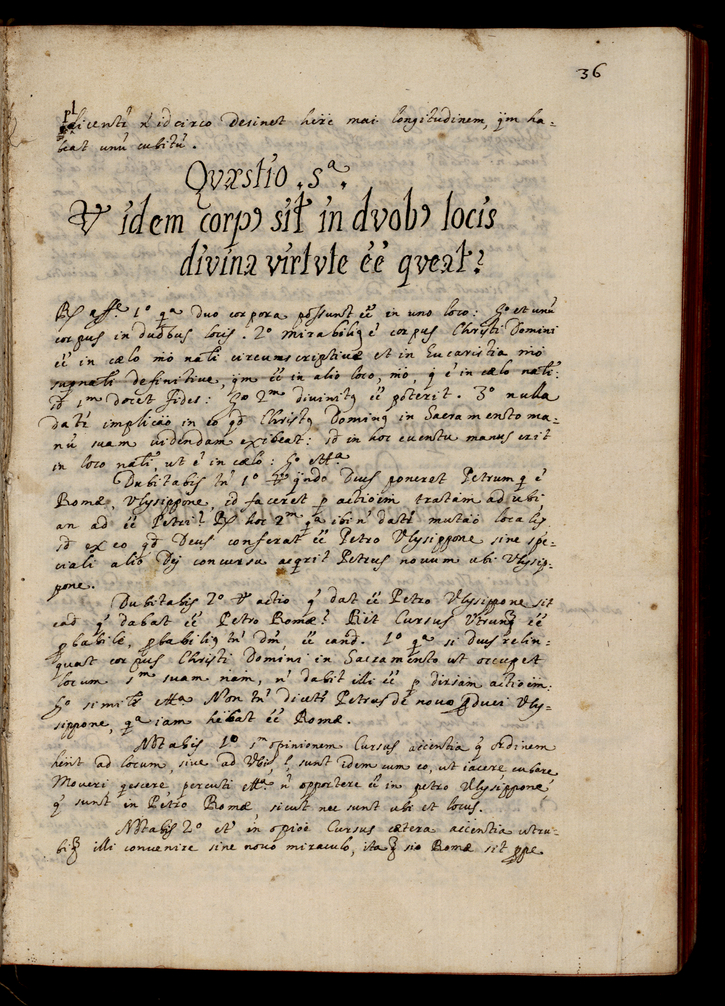 36
dicentr̃ ñ idcirco desinet her̃e mai longitudinem, q̃m ha=
beat unũ cubitũ.
Quæstio .5ª.
V idem corpꝰ sit in duobꝰ locis
divina virtute ẽe queat?
1º qª duo corpora possunt ẽe in uno loco: gº et unũ
corpus in duobus locis. 2º mirabiliꝰ ẽ corpus Christi Domini
ẽe in cælo mõ natˡi circumscriptivæ et in Eucaristia mõ
definitive, q̃m ẽe in alio loco, mõ, q̃ ẽ in cælo natˡi:
sᵈ 1ᵐ docet fides: gº 2ᵐ divinitꝰ ẽe poterit. 3º nulla
datr̃ implicãõ in eo qᵈ Christꝰ Dominꝰ in Sacramento ma=
nũ suam videndam exibeat: sᵈ in hoc eventu manus erit
in loco natˡi, ut ẽ in cælo: gº ettª
Dubitabis tñ 1º V q̃ndo Deus poneret Petrum q̃ ẽ
Romæ, Vlysippone, id faceret p actioẽm tratam ad ubi
an ad ẽe Petri? Rˢ hoc 2ᵐ qª ibi ñ datr̃ mutãiõ localis
sᵈ ex eo qᵈ Deus conferat ẽe Petro Vlysippone sine spe=
ciali alio Dej concursu aqrit Petrus novum ubi Vlysip=
pone.
Dubitabis 2º V actio q̃ dat ẽe Petro Vlysippone sit
eadᵐ q̃ dabat ẽe Petro Romæ? Rˢit Cursus Vtrunqȝ ẽe
pbabile, pbabiliꝰ tñ dm̃, ẽe eand. 1º qª si Deus relin=
quat corpus Christi Domini in Sacramento ut occupet
locum sᵐ suam nam, ñ dabit illi ẽe p dirsam actioẽm:
gº similr̃ ettª Non tñ dicetr̃ Petrus de novo pduci Vly=
sippone, qª iam hẽbat ẽe Romæ.
Notabis 1º sᵐ opinionem Cursus accentia q̃ ordinem
hent ad locum, sive ad Vbi, l̃ sunt idem cum eo, ut iacere, cubare
Moveri qescere, percuti ettª ñ opportere ẽe in petro Vlysippone
q̃ sunt in Petro Romæ, sicut nec sunt ubi et locus.
Notabis 2º et in opioẽ Cursus cætera accentia utru=
biqȝ illi convenire sine novo miraculo, itaqȝ sio Romæ sit ppe